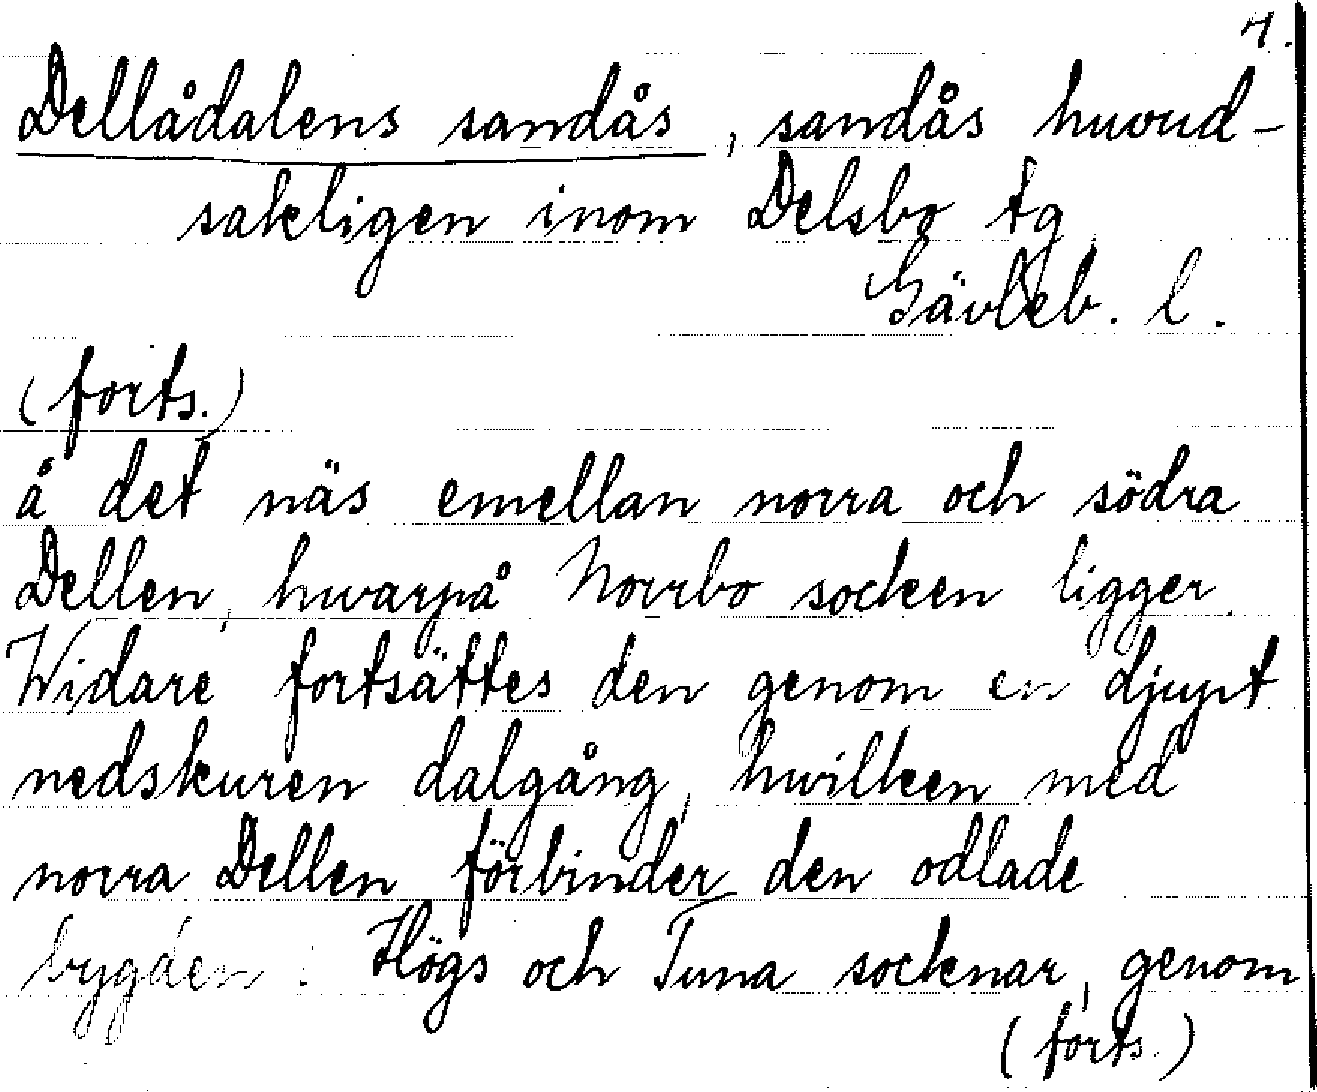 7.
Dellådalens sandås, sandås huvud-
sakligen inom Delsbo tg
Gävleb. l.
(forts.)
å det näs emellan norra och södra
Dellen, hwarpå Norrbo socken ligger.
Widare fortsättes den genom en djupt
nedskuren dalgång, hwilken med
norra Dellen förbinder den odlade
bygden i Högs och Tuna socknar, genom
(forts.)